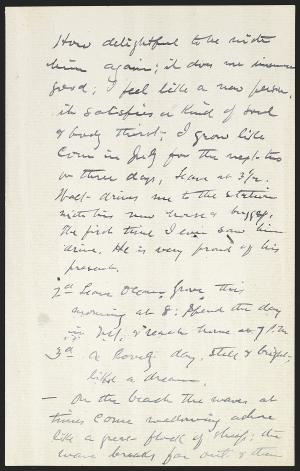 How delightful to be with
him again; it does me immense
good; I feel like a new person,
it satisfies a kind of soul
& body thirst - I grow like
corn in July for the next two
or three days, Leave at 3½.
Walt drives me to the station
with his new horse & buggy,
the first time I ever saw him
drive. He is very proud of his
present.
2d Leave Ocean Grove this
morning at 8; Spend the day
in N.Y. & reach home at 7 P.M.
3d A lovely day, still & bright;
like a dream.
- On the beach the waves at
times come meadowing ashore
like a great flock of sheep; the
wave breaks far out & then